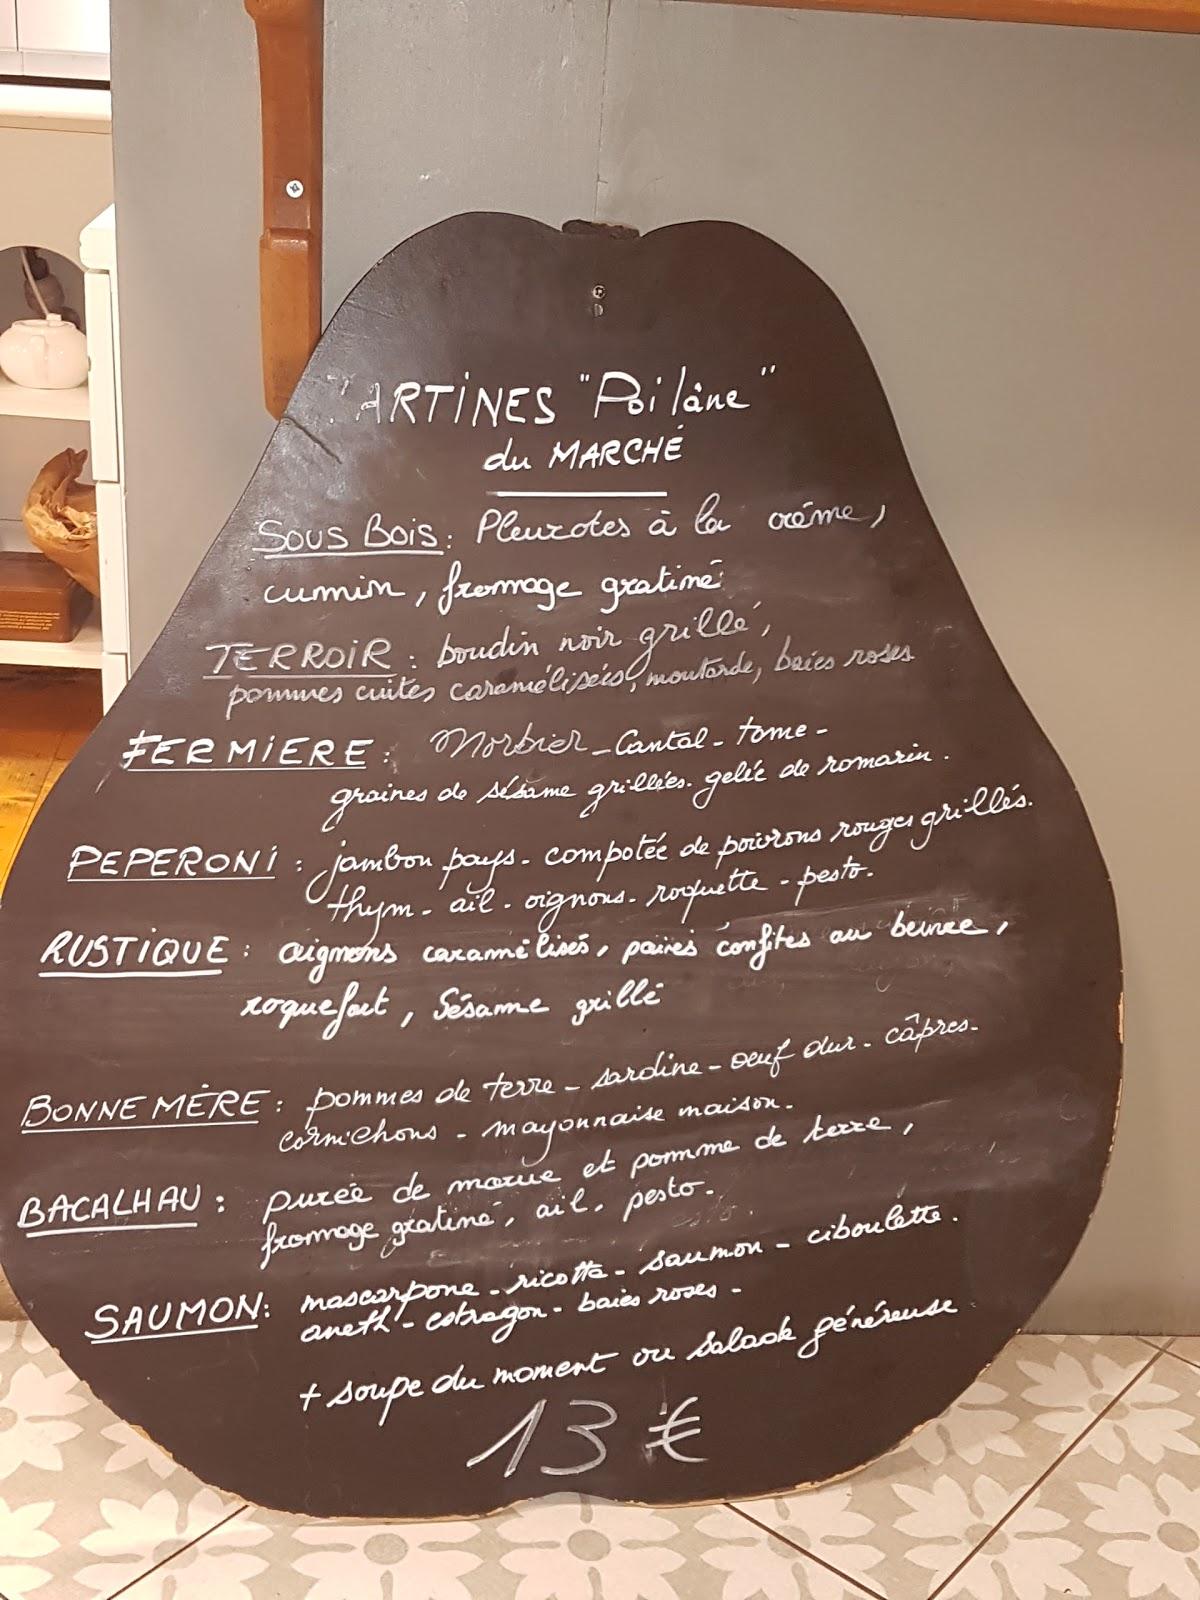 TARTINES "Poilâne"
du MARCHÉ
SOUS BOIS : Pleurotes à la crème,
cumin, fromage gratiné
TERROIR : boudin noir grillé,
pommes cuites caramélisées, moutarde, baies roses
FERMIERE : Morbier - Cantal - tome -
graines de sésame grillées. gelée de romarin.
PEPERONI : jambon pays - compotée de poivrons rouges grillés.
thym - ail - oignons - roquette - pesto.
RUSTIQUE : oignons caramélisés, poires confites au beurre,
roquefort, Sésame grillé
BONNE MÈRE : pommes de terre - sardine - oeuf dur - câpres -
cornichons - mayonnaise maison.
BACALHAU : purée de morue et pomme de terre,
fromage gratiné, ail, pesto.
SAUMON : mascarpone - ricotta - saumon - ciboulette.
aneth - estragon - baies roses -
+ soupe du moment ou salade généreuse
13 €